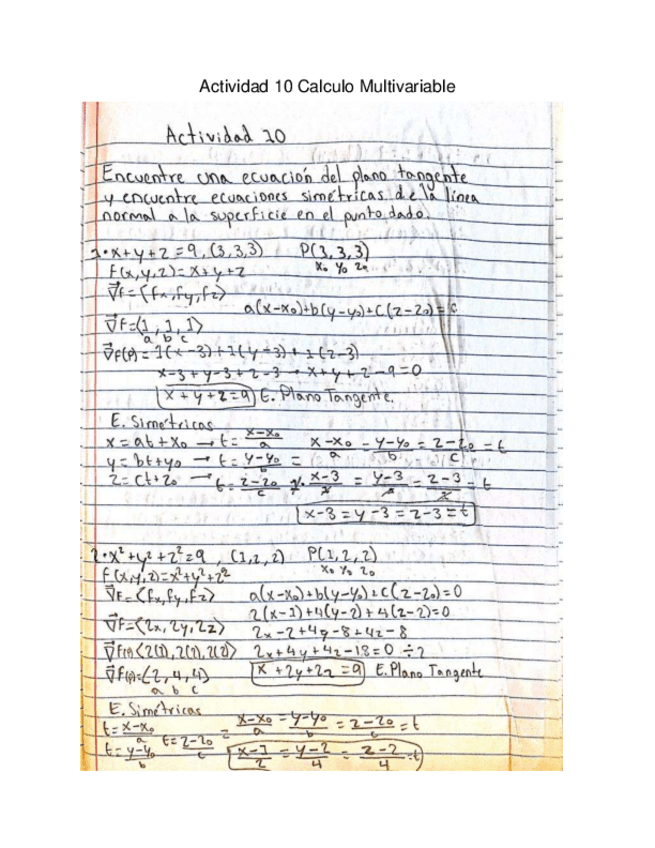 Actividad 10 Calculo Multivariable
Actividad 10
Encuentre una ecuación del plano tangente
y encuentre ecuaciones simétricas de la línea
normal a la superficie en el punto dado.
1• x+y+z=9, (3,3,3) P(3,3,3)
x₀ y₀ z₀
f(x,y,z)=x+y+z
∇f=⟨fx,fy,fz⟩
a(x-x₀)+b(y-y₀)+c(z-z₀)=c
∇f=⟨1,1,1⟩
a b c
∇f(P)=1(x-3)+1(y-3)+1(z-3)
x-3+y-3+z-3 → x+y+z-9=0
x+y+z=9 E. Plano Tangente.
E. Simétricas
x=at+x₀ → t=x-x₀/a x-x₀/a = y-y₀/b = z-z₀/c = t
y=bt+y₀ → t=y-y₀/b =
z=ct+z₀ → t=z-z₀/c x-3/1 = y-3/1 = z-3/1 = t
x-3=y-3=z-3=t
2• x²+y²+z²=9, (1,2,2) P(1,2,2)
x₀ y₀ z₀
f(x,y,z)=x²+y²+z²
∇f=⟨fx,fy,fz⟩ a(x-x₀)+b(y-y₀)+c(z-z₀)=0
2(x-1)+4(y-2)+4(z-2)=0
∇f=⟨2x,2y,2z⟩ 2x-2+4y-8+4z-8
∇f(P)⟨2(1),2(2),2(2)⟩ 2x+4y+4z-18=0 ÷2
∇f(P)=⟨2,4,4⟩ x+2y+2z=9 E. Plano Tangente
a b c
E. Simétricas
t=x-x₀/a t=z-z₀/c = x-x₀/a = y-y₀/b = z-z₀/c = t
t=y-y₀/b x-1/2 = y-2/4 = z-2/4 = t